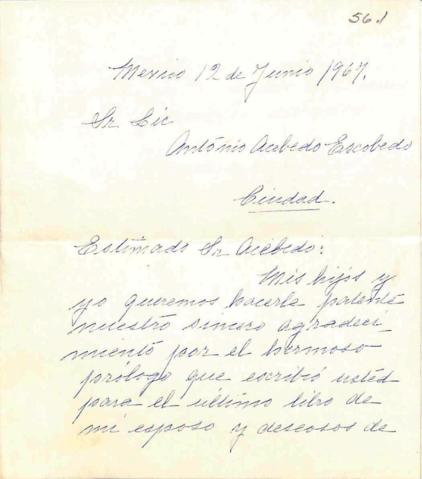 56.1
Mexico 12 de Junio 1967.
Sr Lic
António Acebedo Escobedo
Ciudad.
Estimado Sr Acebedo:
Mis hijos y
yo queremos hacerle patente
nuestro sincero agradeci
miento por el hermoso
prólogo que escribió usted
para el último libro de
mi esposo y deseosos de